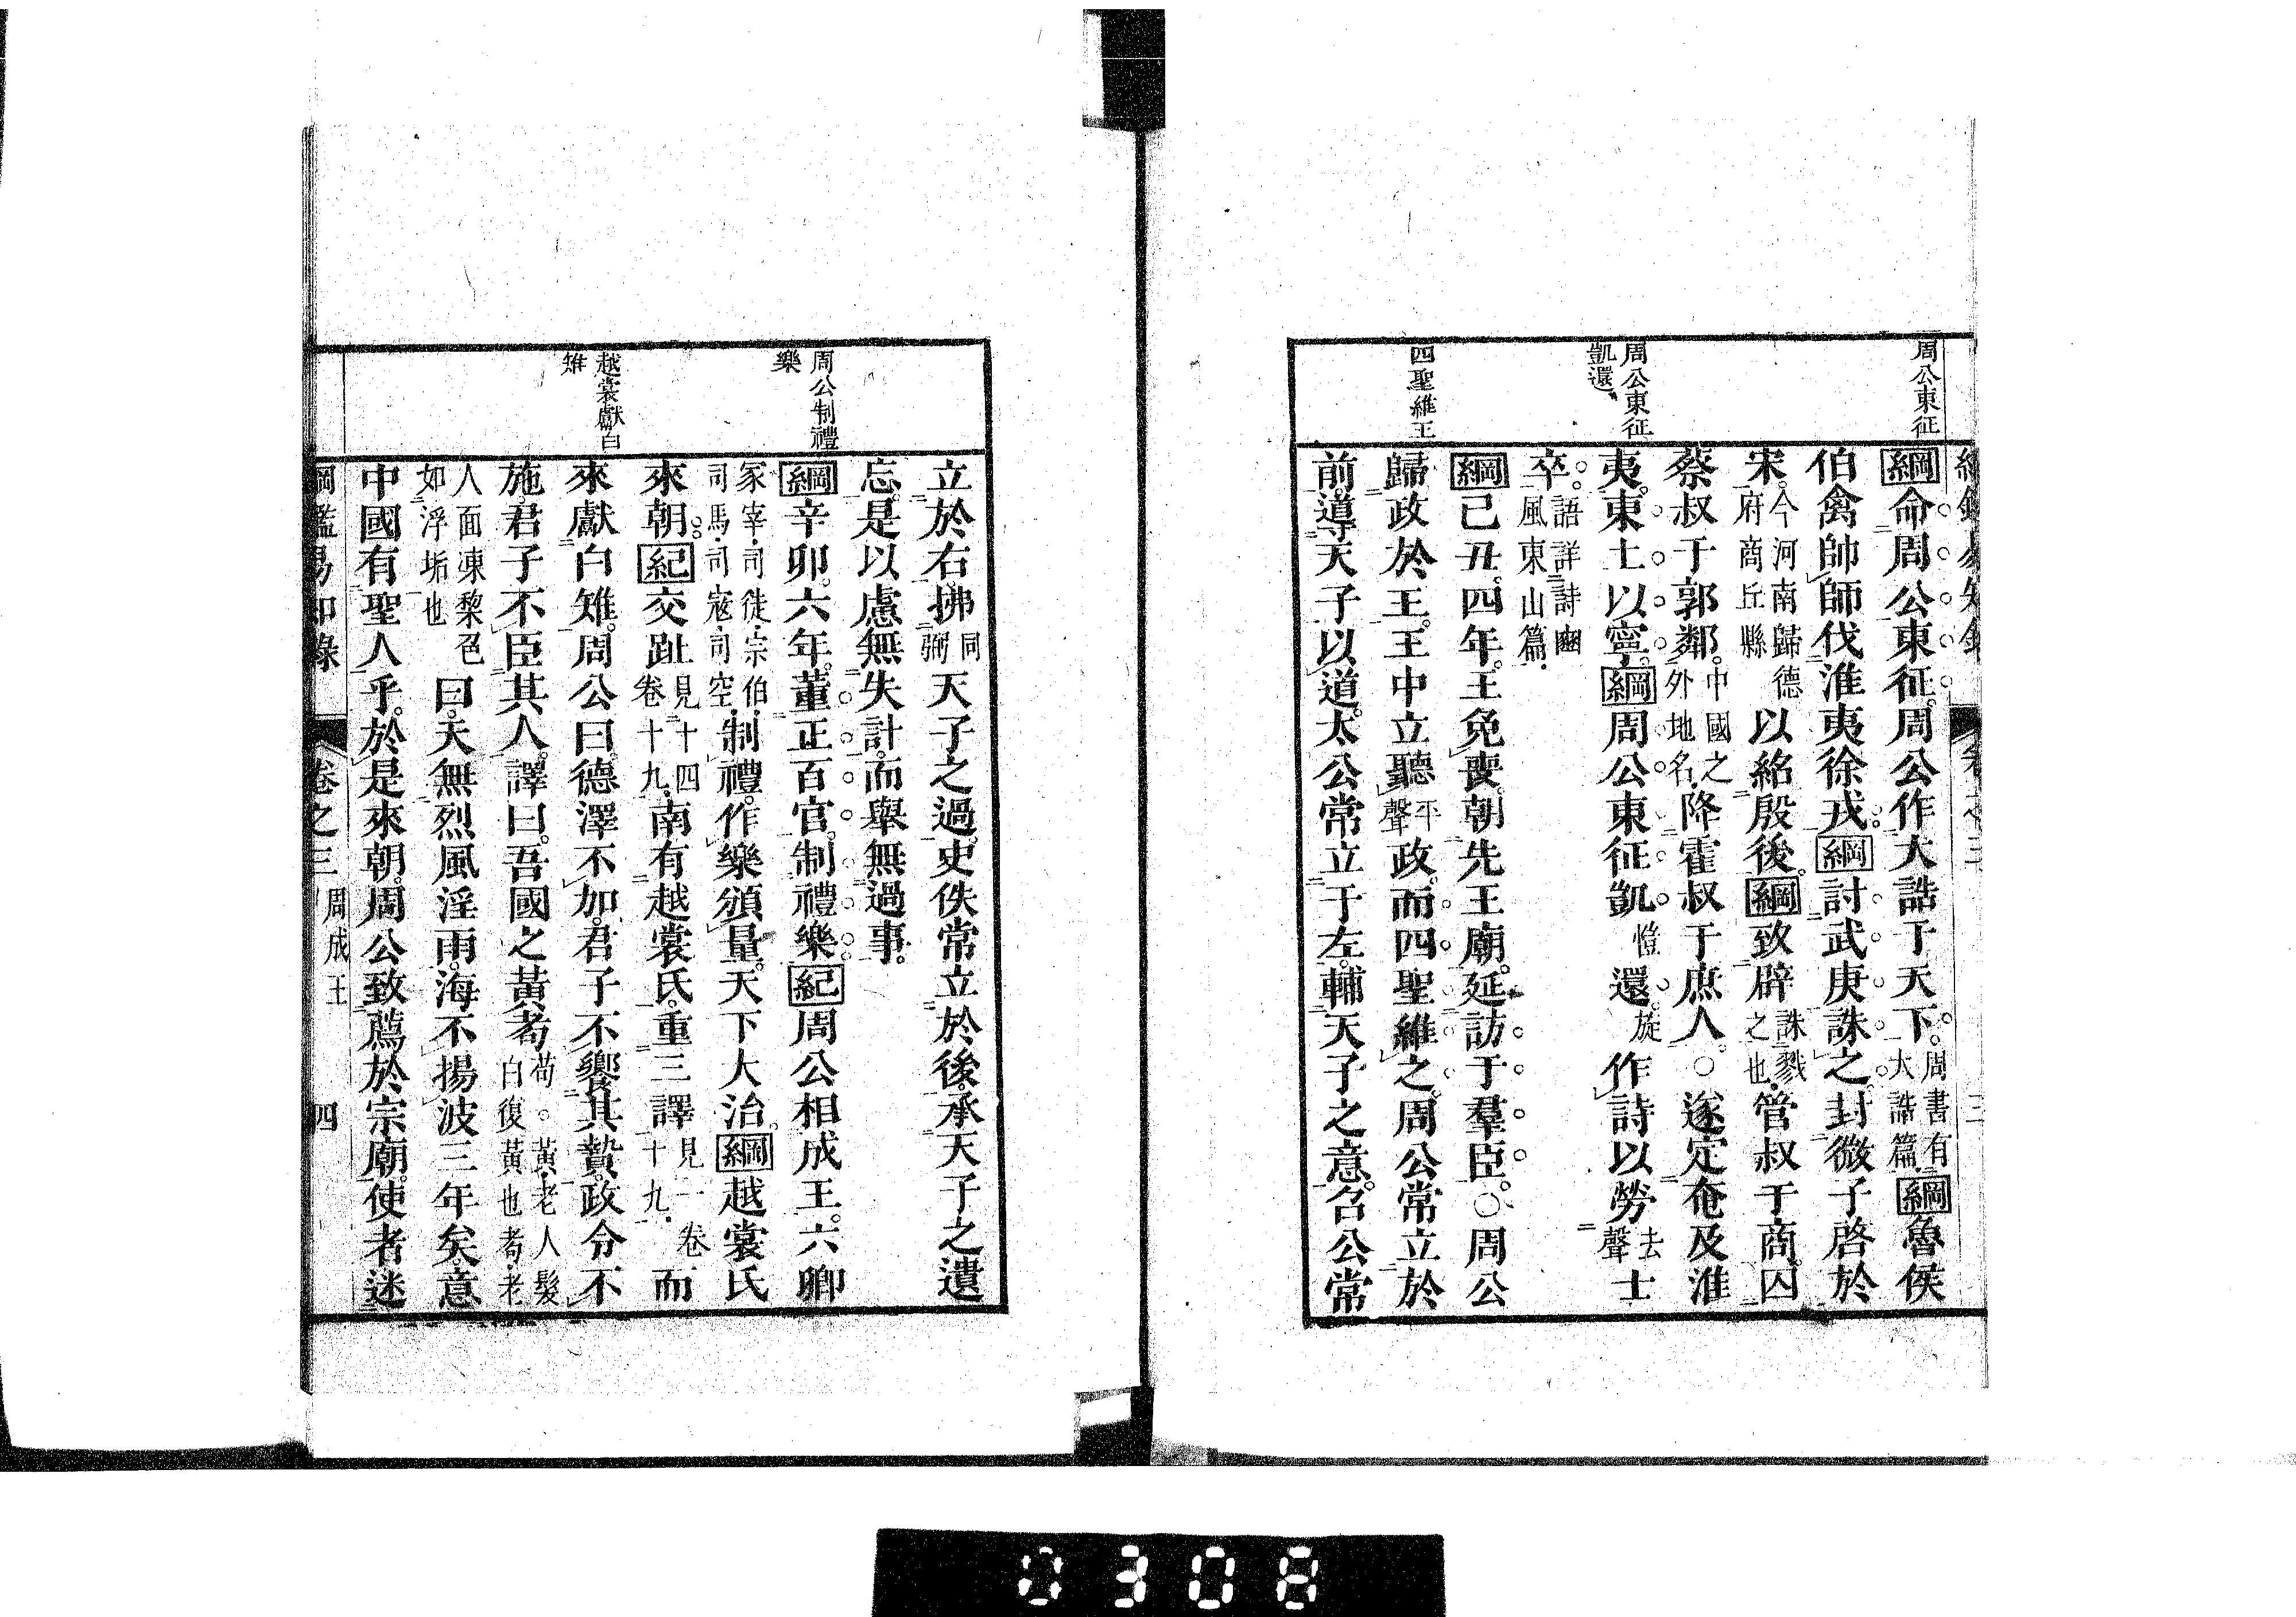 周公東征
周公東征
凱還
四聖維王
綱命周公東征周公作大誥于天下周書有大誥篇綱魯侯
伯禽帥師伐淮夷徐戎綱討武庚誅之封微子啓於
宋今河南歸德府商丘縣以紹殷後綱致辟誅戮之也管叔于商囚
蔡叔于郭鄰中國之外地名降霍叔于庶人○遂定奄及淮
夷東土以寧綱周公東征凱愷還旋作詩以勞去聲士
卒語詳詩豳風東山篇
綱己丑四年王免喪朝先王廟延訪于羣臣○周公
歸政於王王中立聽平聲政而四聖維之周公常立於
前導天子以道太公常立于左輔天子之意召公常
周公制禮
樂
越裳獻白
雉
立於右拂同弼天子之過史佚常立於後承天子之遺
忘是以慮無失計而舉無過事
綱辛卯六年董正百官制禮樂紀周公相成王六卿
冢宰司徒宗伯司馬司寇司空制禮作樂頒量天下大治綱越裳氏
來朝紀交趾見十四卷十九南有越裳氏重三譯見一卷十九而
來獻白雉周公曰德澤不加君子不饗其贄政令不
施君子不臣其人譯曰吾國之黃耇苟○黃老人髮白復黃也耇老
人面凍黎色如浮垢也曰天無烈風淫雨海不揚波三年矣意
中國有聖人乎於是來朝周公致薦於宗廟使者迷
綱鑑易知錄 卷之三 周成王 四
0308